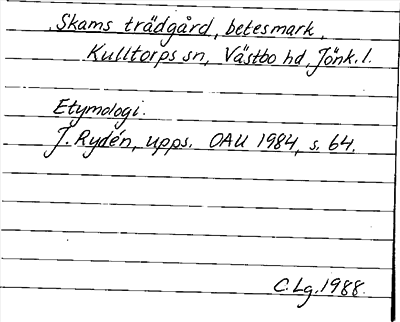 Skams trädgård, betesmark,
Kulltorps sn, Västbo hd, Jönk.l.
Etymologi.
J. Rydén, upps. OAU 1984, s. 64.
C.Lg.1988.